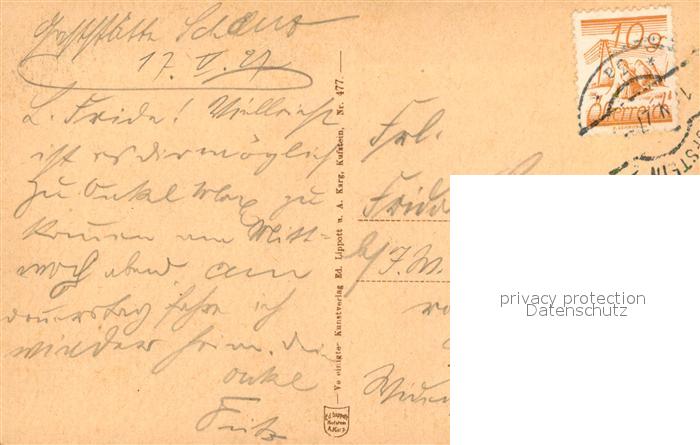 Gaststätte Schanz
17. V. 27
L. Frida! Vielleicht
ist es dir möglich
zu Onkel Max zu
kommen am Mitt-
woch abend am
donnerstag fahre ich
wieder heim. Dein
onkel
Fritz
Vereinigte Kunstverlag Ed. Lippott u. A. Karg, Kufstein, Nr. 477.
Ed. Lippott
Kufstein
A. Karg
10 g
Österreich
KUFSTEIN
Frl.
Frida
b/ J. W.
privacy protection
Datenschutz